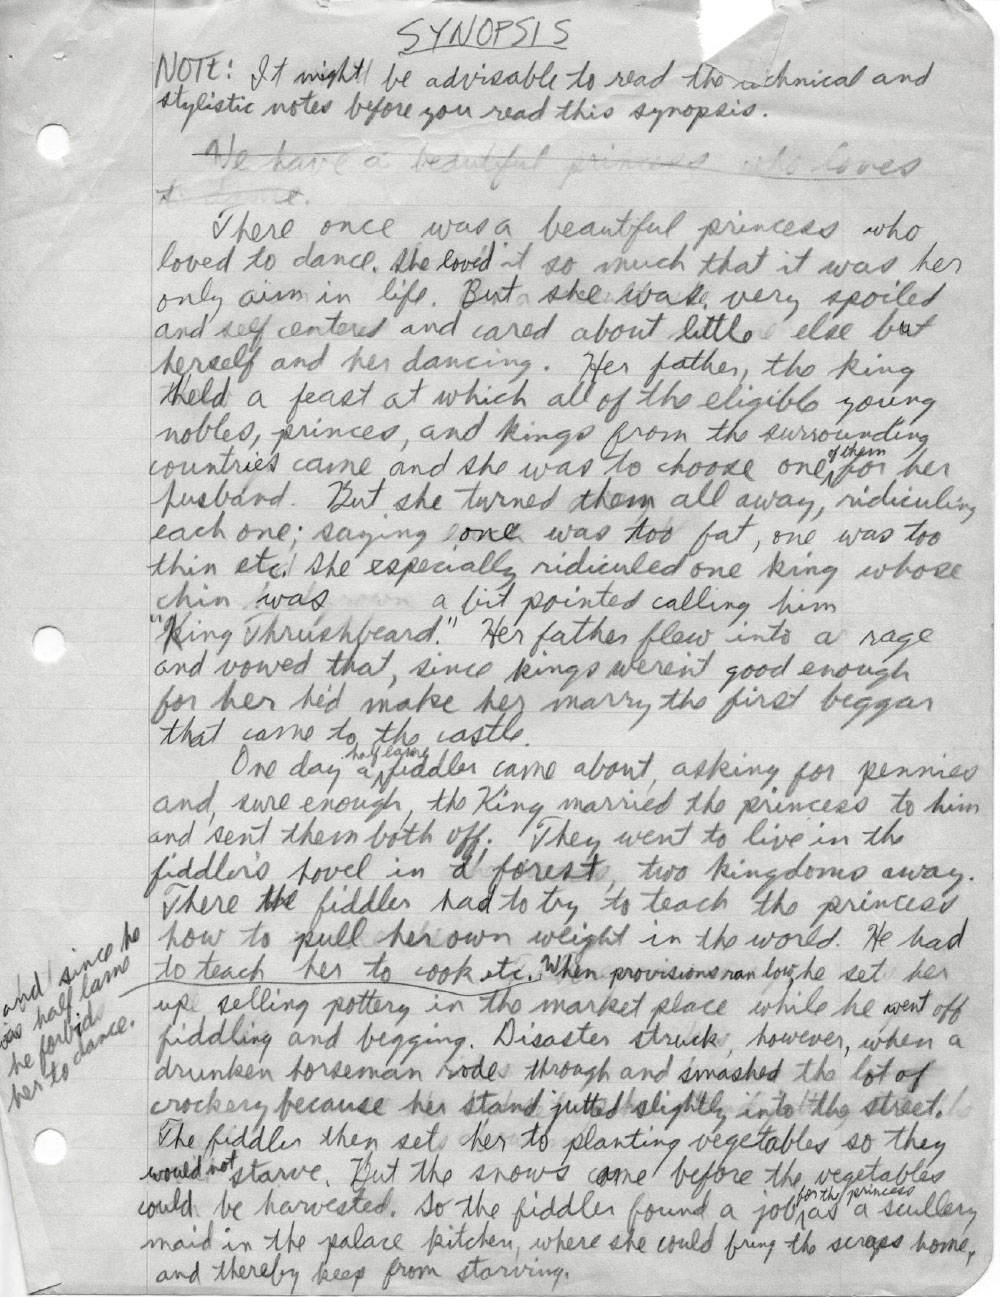 SYNOPSIS
NOTE: It might be advisable to read the technical and
stylistic notes before you read this synopsis.
We have a beautiful princess who loves
to dance.
There once was a beautiful princess who
loved to dance. She loved it so much that it was her
only aim in life. But she was very spoiled
and self centered and cared about little else but
herself and her dancing. Her father, the king
held a feast at which all of the eligible young
nobles, princes, and kings from the surrounding
countries came and she was to choose one of them for her
husband. But she turned them all away, ridiculing
each one; saying one was too fat, one was too
thin etc. She especially ridiculed one king whose
chin was a bit pointed calling him
"King Thrushbeard." Her father flew into a rage
and vowed that, since kings weren't good enough
for her he'd make her marry the first beggar
that came to the castle.
One day a half lame fiddler came about, asking for pennies
and, sure enough, the King married the princess to him
and sent them both off. They went to live in the
fiddler's hovel in a forest, two kingdoms away.
There the fiddler had to try to teach the princess
how to pull her own weight in the world. He had
to teach her to cook etc. When provisions ran low, he set her
and since he
was half lame
he forbid
her to dance.
up selling pottery in the market place while he went off
fiddling and begging. Disaster struck, however, when a
drunken horseman rode through and smashed the lot of
crockery because her stand jutted slightly into the street.
The fiddler then set her to planting vegetables so they
would not starve. But the snows came before the vegetables
could be harvested. So the fiddler found a job for the princess as a scullery
maid in the palace kitchen, where she could bring the scraps home,
and thereby keep from starving.